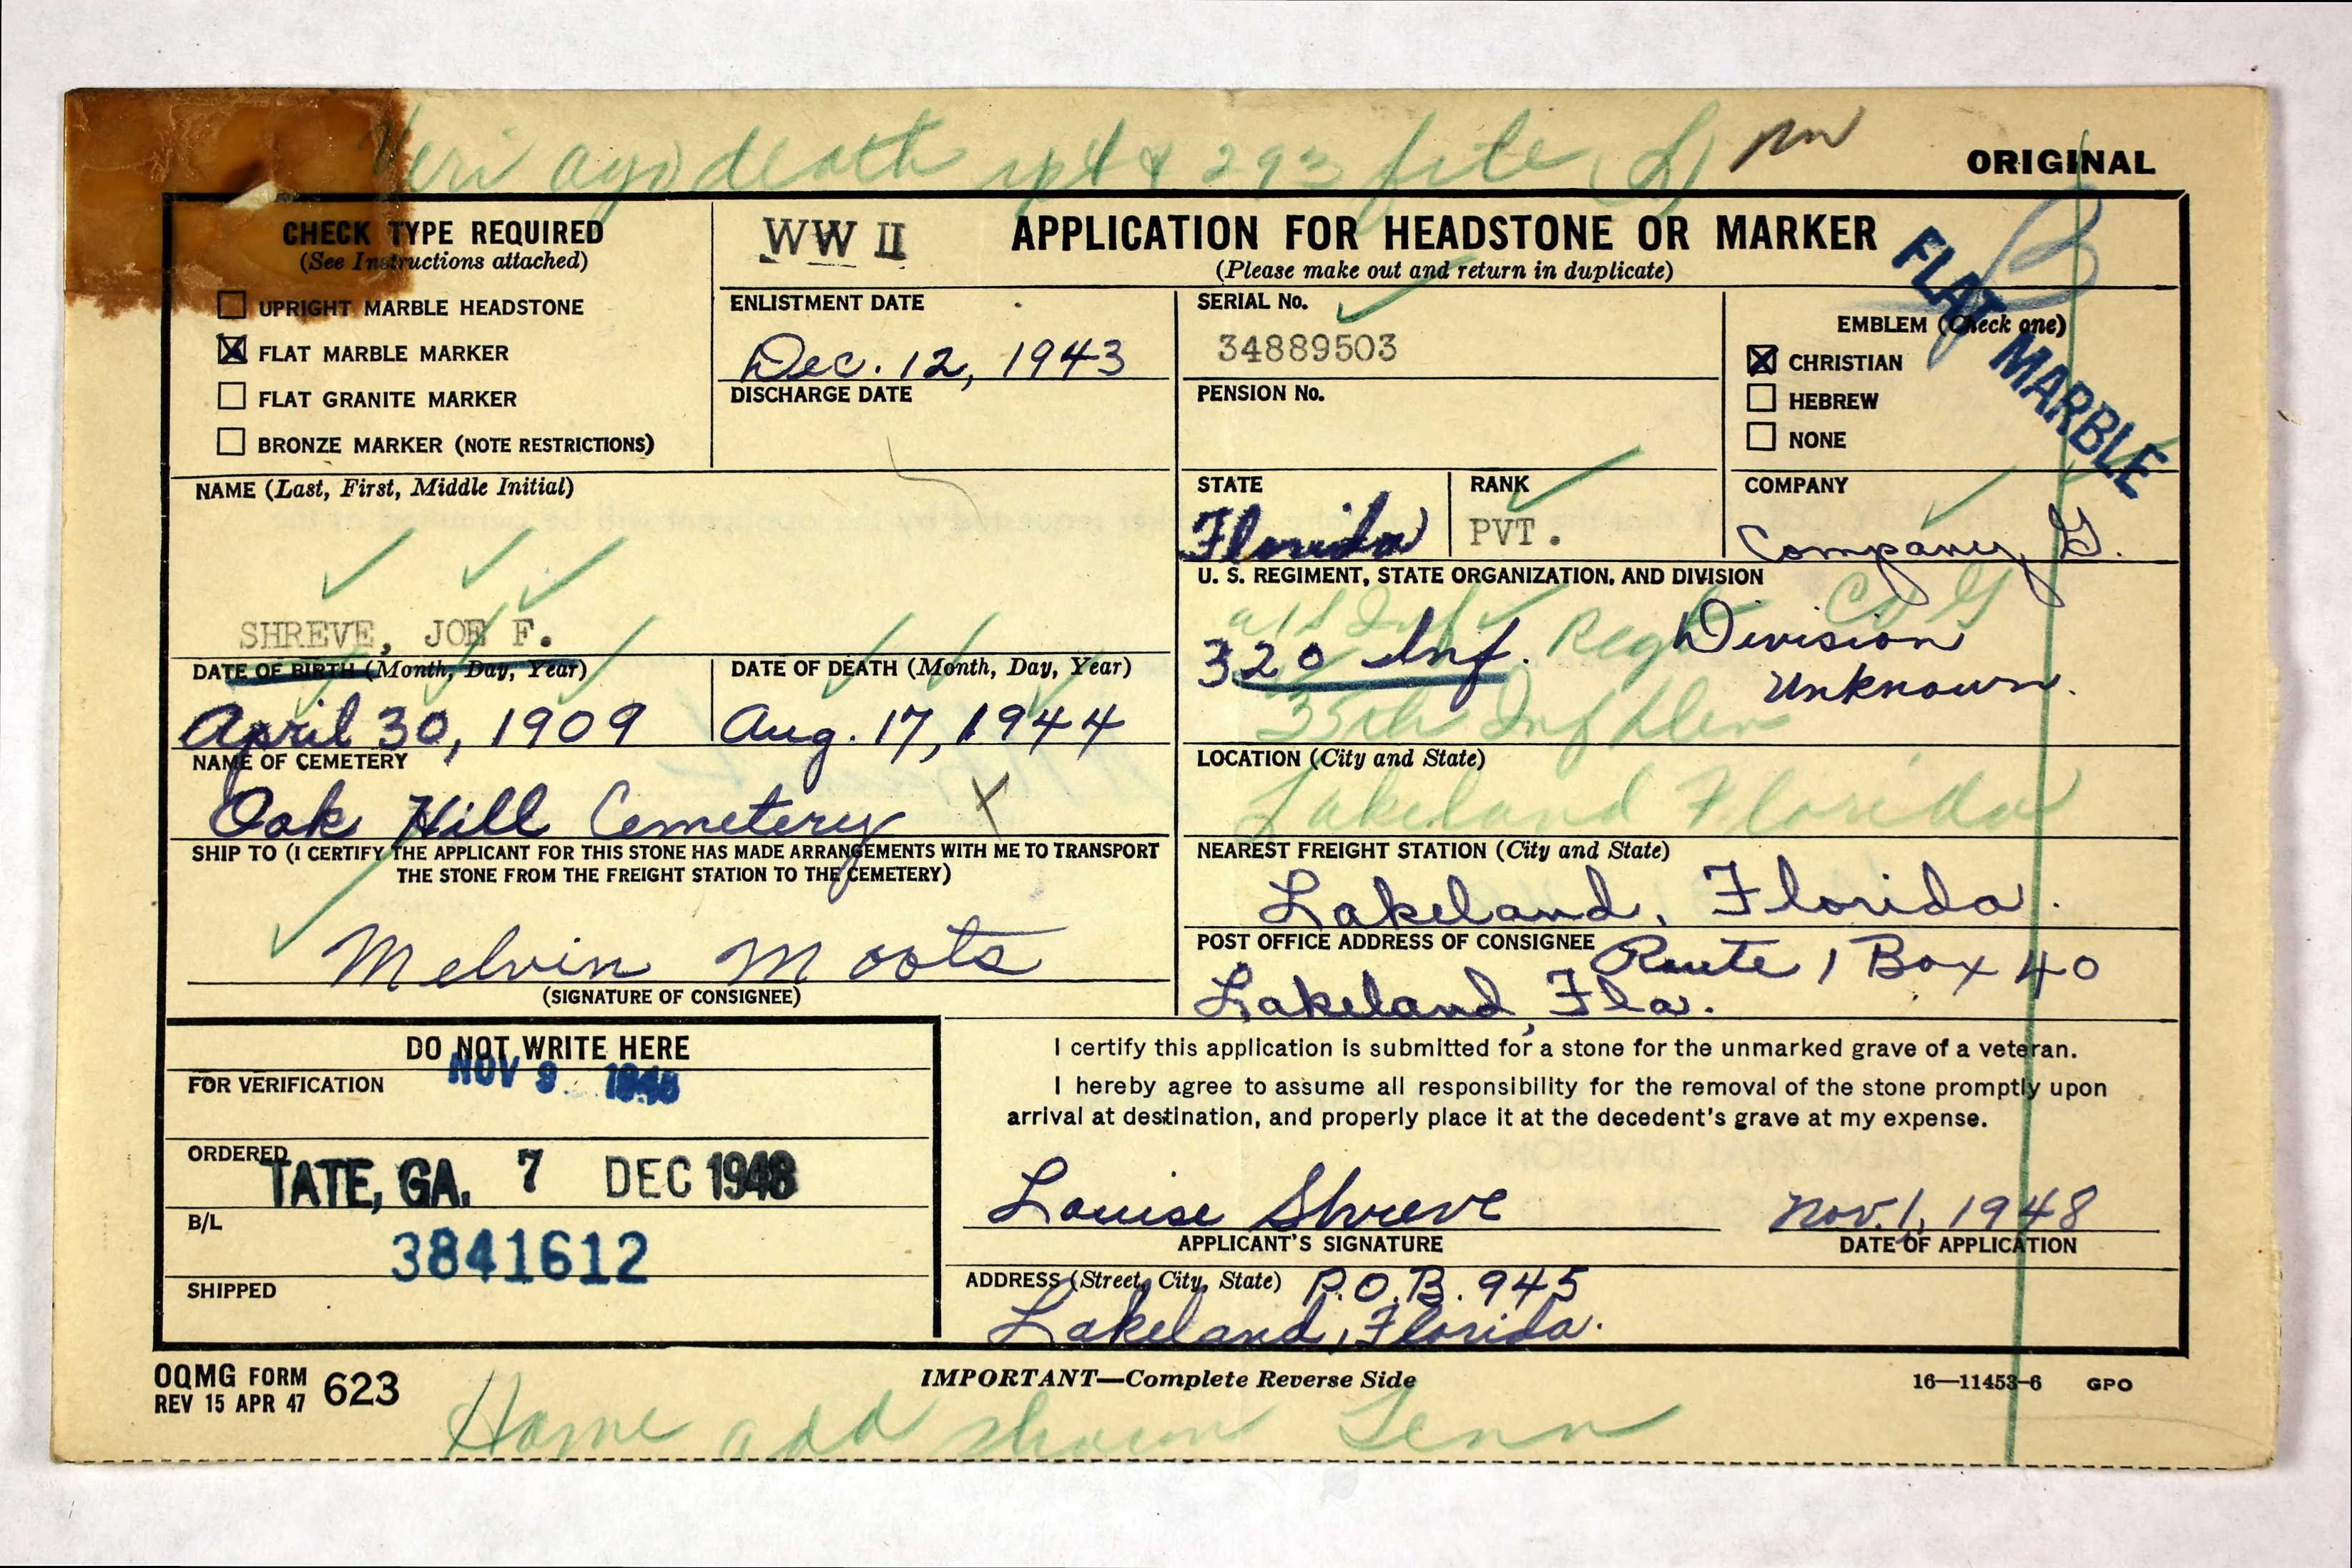 Veri ago death rpt & 293 file (L)
ORIGINAL
CHECK TYPE REQUIRED
(See Instructions attached)
☐ UPRIGHT MARBLE HEADSTONE
☒ FLAT MARBLE MARKER
☐ FLAT GRANITE MARKER
☐ BRONZE MARKER (NOTE RESTRICTIONS)
WW II
APPLICATION FOR HEADSTONE OR MARKER
(Please make out and return in duplicate)
ENLISTMENT DATE
Dec. 12, 1943
DISCHARGE DATE
SERIAL No.
34889503
PENSION No.
EMBLEM (Check one)
☒ CHRISTIAN
☐ HEBREW
☐ NONE
FLAT MARBLE
B
NAME (Last, First, Middle Initial)
SHREVE, JOE F.
STATE
Florida
RANK
PVT.
COMPANY
Company G.
U. S. REGIMENT, STATE ORGANIZATION, AND DIVISION
Co G
320 Inf. Reg Division
Unknown.
35th Inf Div
DATE OF BIRTH (Month, Day, Year)
April 30, 1909
DATE OF DEATH (Month, Day, Year)
Aug. 17, 1944
NAME OF CEMETERY
Oak Hill Cemetery X
LOCATION (City and State)
Lakeland Florida
SHIP TO (I CERTIFY THE APPLICANT FOR THIS STONE HAS MADE ARRANGEMENTS WITH ME TO TRANSPORT
THE STONE FROM THE FREIGHT STATION TO THE CEMETERY)
Melvin Moots
(SIGNATURE OF CONSIGNEE)
NEAREST FREIGHT STATION (City and State)
Lakeland, Florida.
POST OFFICE ADDRESS OF CONSIGNEE Route 1 Box 40
Lakeland, Fla.
DO NOT WRITE HERE
FOR VERIFICATION NOV 9 1948
ORDERED
TATE, GA. 7 DEC 1948
B/L
3841612
SHIPPED
I certify this application is submitted for a stone for the unmarked grave of a veteran.
I hereby agree to assume all responsibility for the removal of the stone promptly upon
arrival at destination, and properly place it at the decedent's grave at my expense.
Louise Shreve
APPLICANT'S SIGNATURE
Nov. 1, 1948
DATE OF APPLICATION
ADDRESS (Street, City, State) P.O.B. 945
Lakeland, Florida.
OQMG FORM 623
REV 15 APR 47
IMPORTANT—Complete Reverse Side
16—11453-6 GPO
Home add shown Tenn